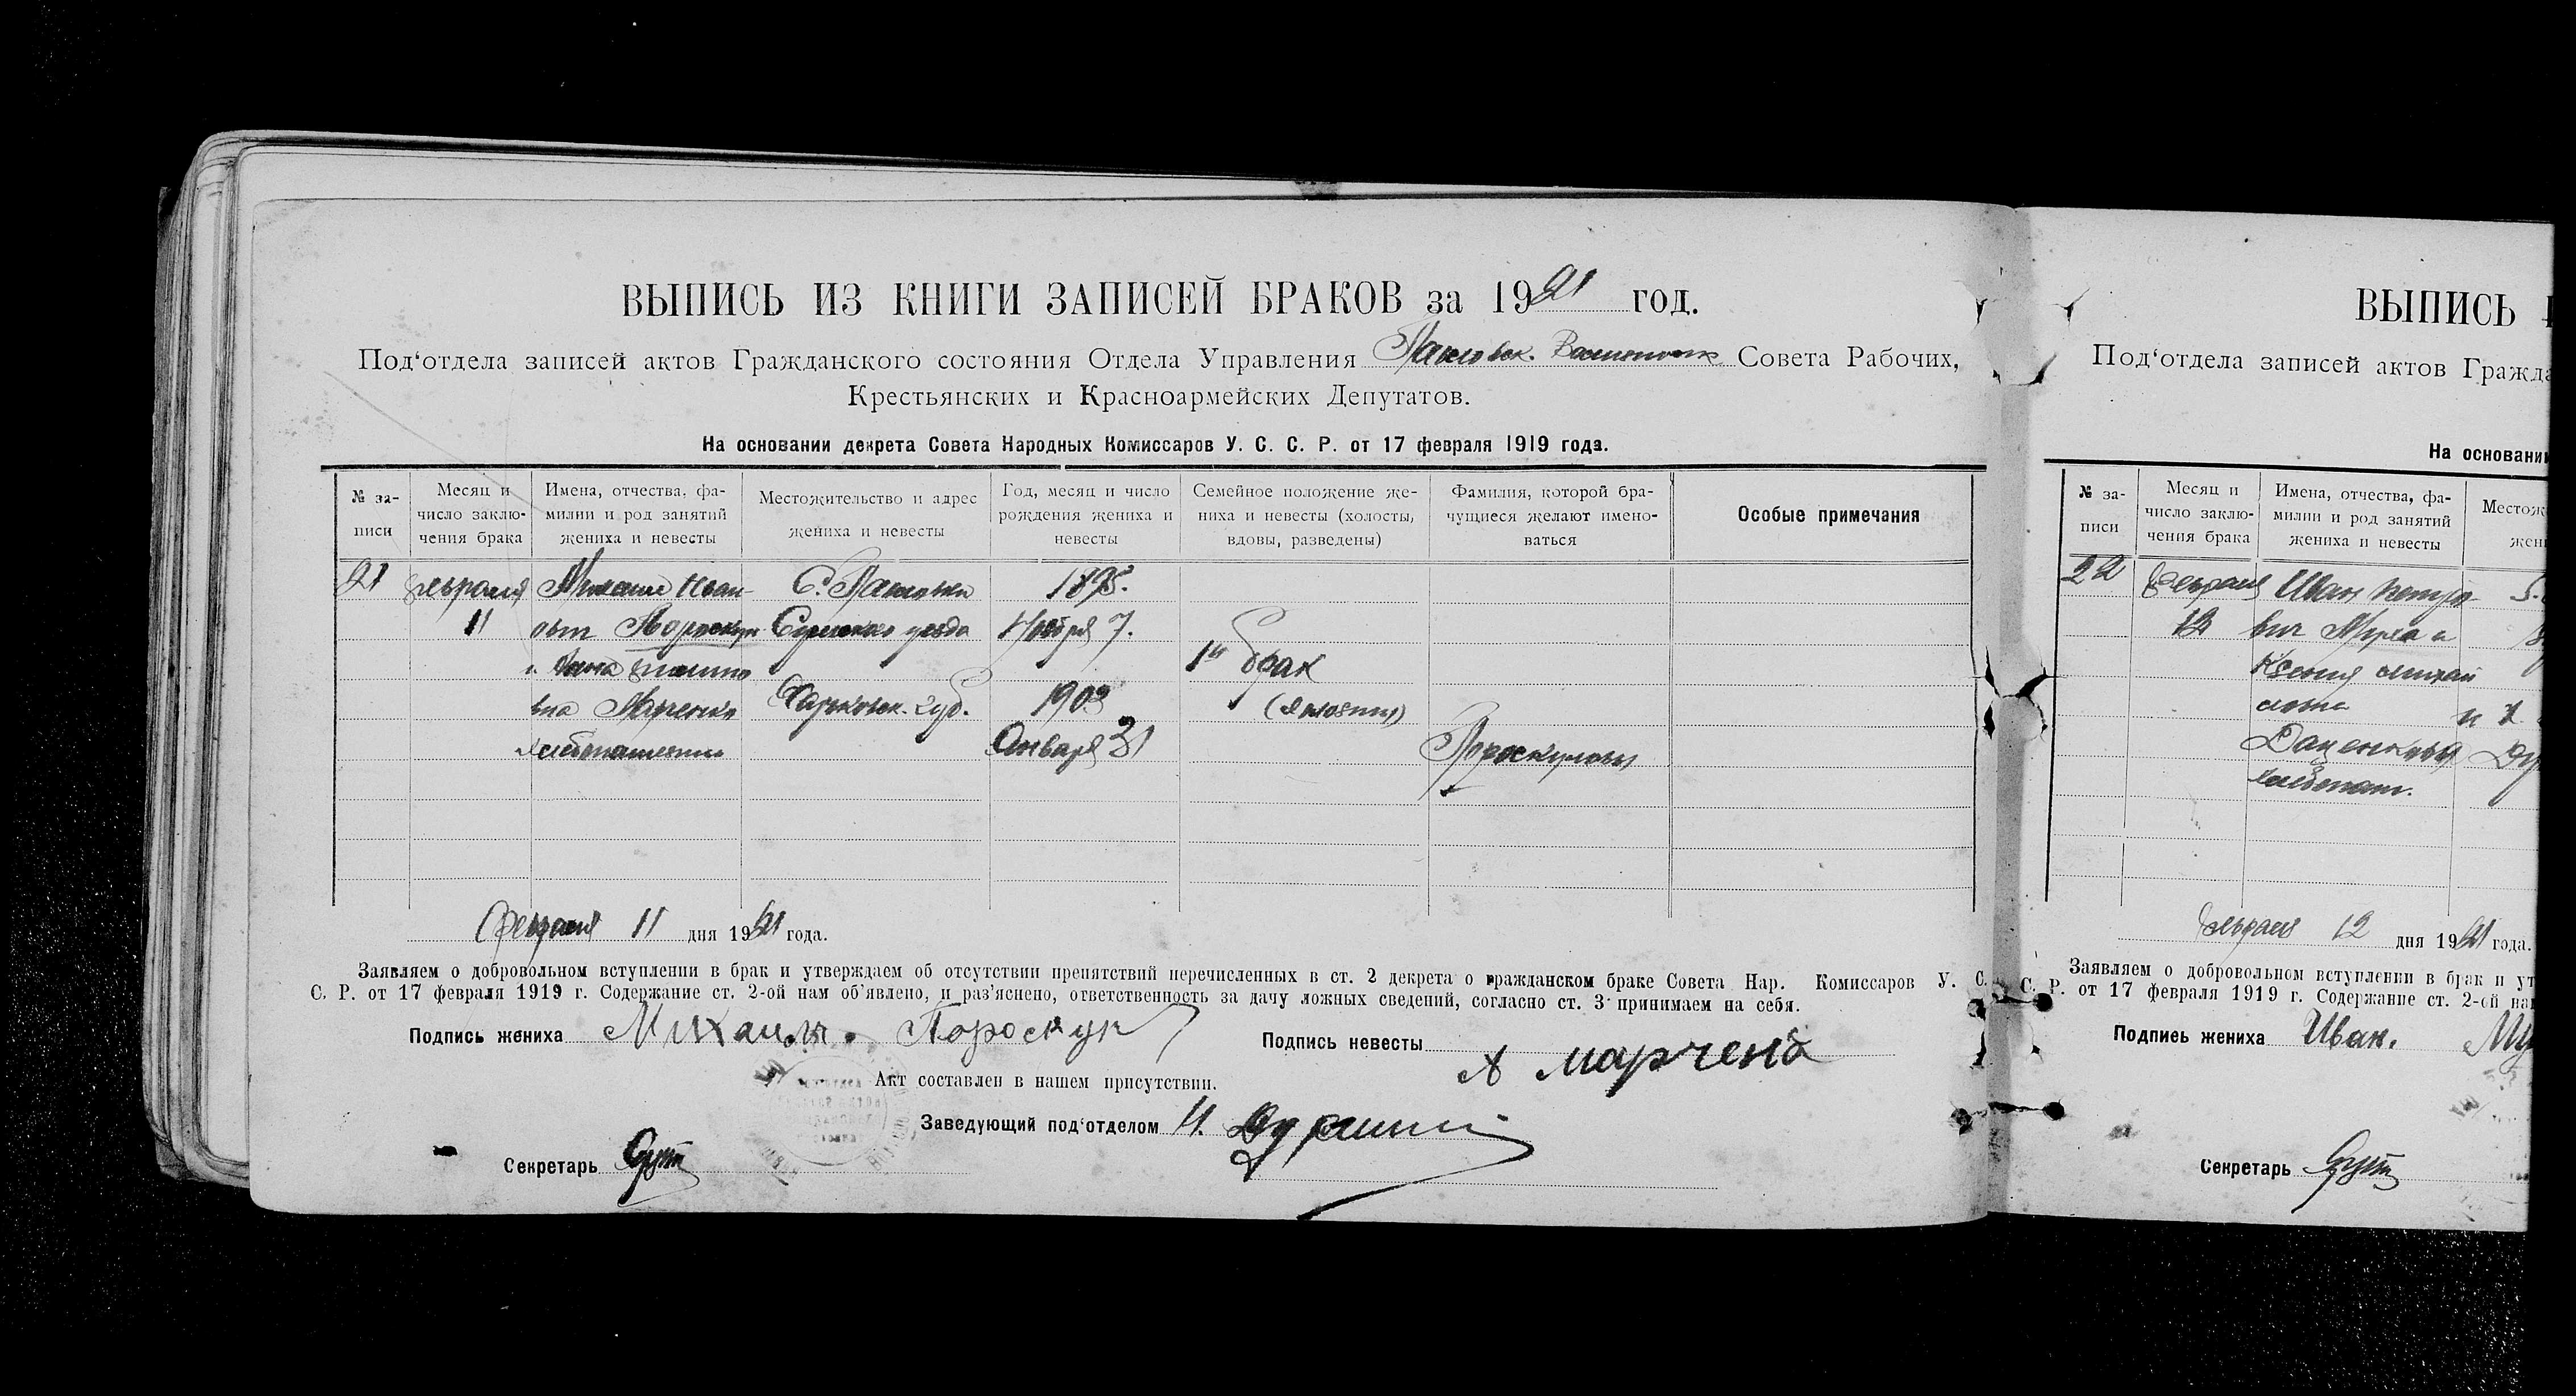 ВЫПИСЬ ИЗ КНИГИ ЗАПИСЕЙ БРАКОВ за 1921 год.
Под‘отдела записей актов Гражданского состояния Отдела Управления Совета Рабочих,
Крестьянских и Красноармейских Депутатов.
На основании декрета Совета Народных Комиссаров У. С. С. Р. от 17 февраля 1919 года.
№ за-
писи
Месяц и
число заклю-
чения брака
Имена, отчества, фа-
милии и род занятий
жениха и невесты
Местожительство и адрес
жениха и невесты
Год, месяц и число
рождения жениха и
невесты
Семейное положение же-
ниха и невесты (холосты,
вдовы, разведены)
Фамилия, которой бра-
чущиеся желают имено-
ваться
Особые примечания
21
февраля
11
Михаил Иван-
Пороскун
вна Марченко
С.
Сумского уезда
Харьковск. губ.
Ноября 7.
Января 31
1й брак
февраля 11 дня 1921 года.
Заявляем о добровольном вступлении в брак и утверждаем об отсутствии препятствий перечисленных в ст. 2 декрета о гражданском браке Совета Нар. Комиссаров У. С.
С. Р. от 17 февраля 1919 г. Содержание ст. 2-ой нам об’явлено, и раз’яснено, ответственность за дачу ложных сведений, согласно ст. 3 принимаем на себя.
Подпись жениха Михаил. Пороскун
Подпись невесты А марчена
Акт составлен в нашем присутствии.
Заведующий под‘отделом И.
Секретарь
ВЫПИСЬ
Под‘отдела записей актов Гражда
На основании
№ за-
писи
Месяц и
число заклю-
чения брака
Имена, отчества, фа-
милии и род занятий
жениха и невесты
Местож
жен
22
февраля
12
Иван петро-
вич Муха и
Ксения михай
Даценкова
хлебопаш.
февраля 12 дня 1921 года.
Заявляем о добровольном вступлении в брак и ут
С. Р. от 17 февраля 1919 г. Содержание ст. 2-ой нам
Подпись жениха Иван. Му
Секретарь